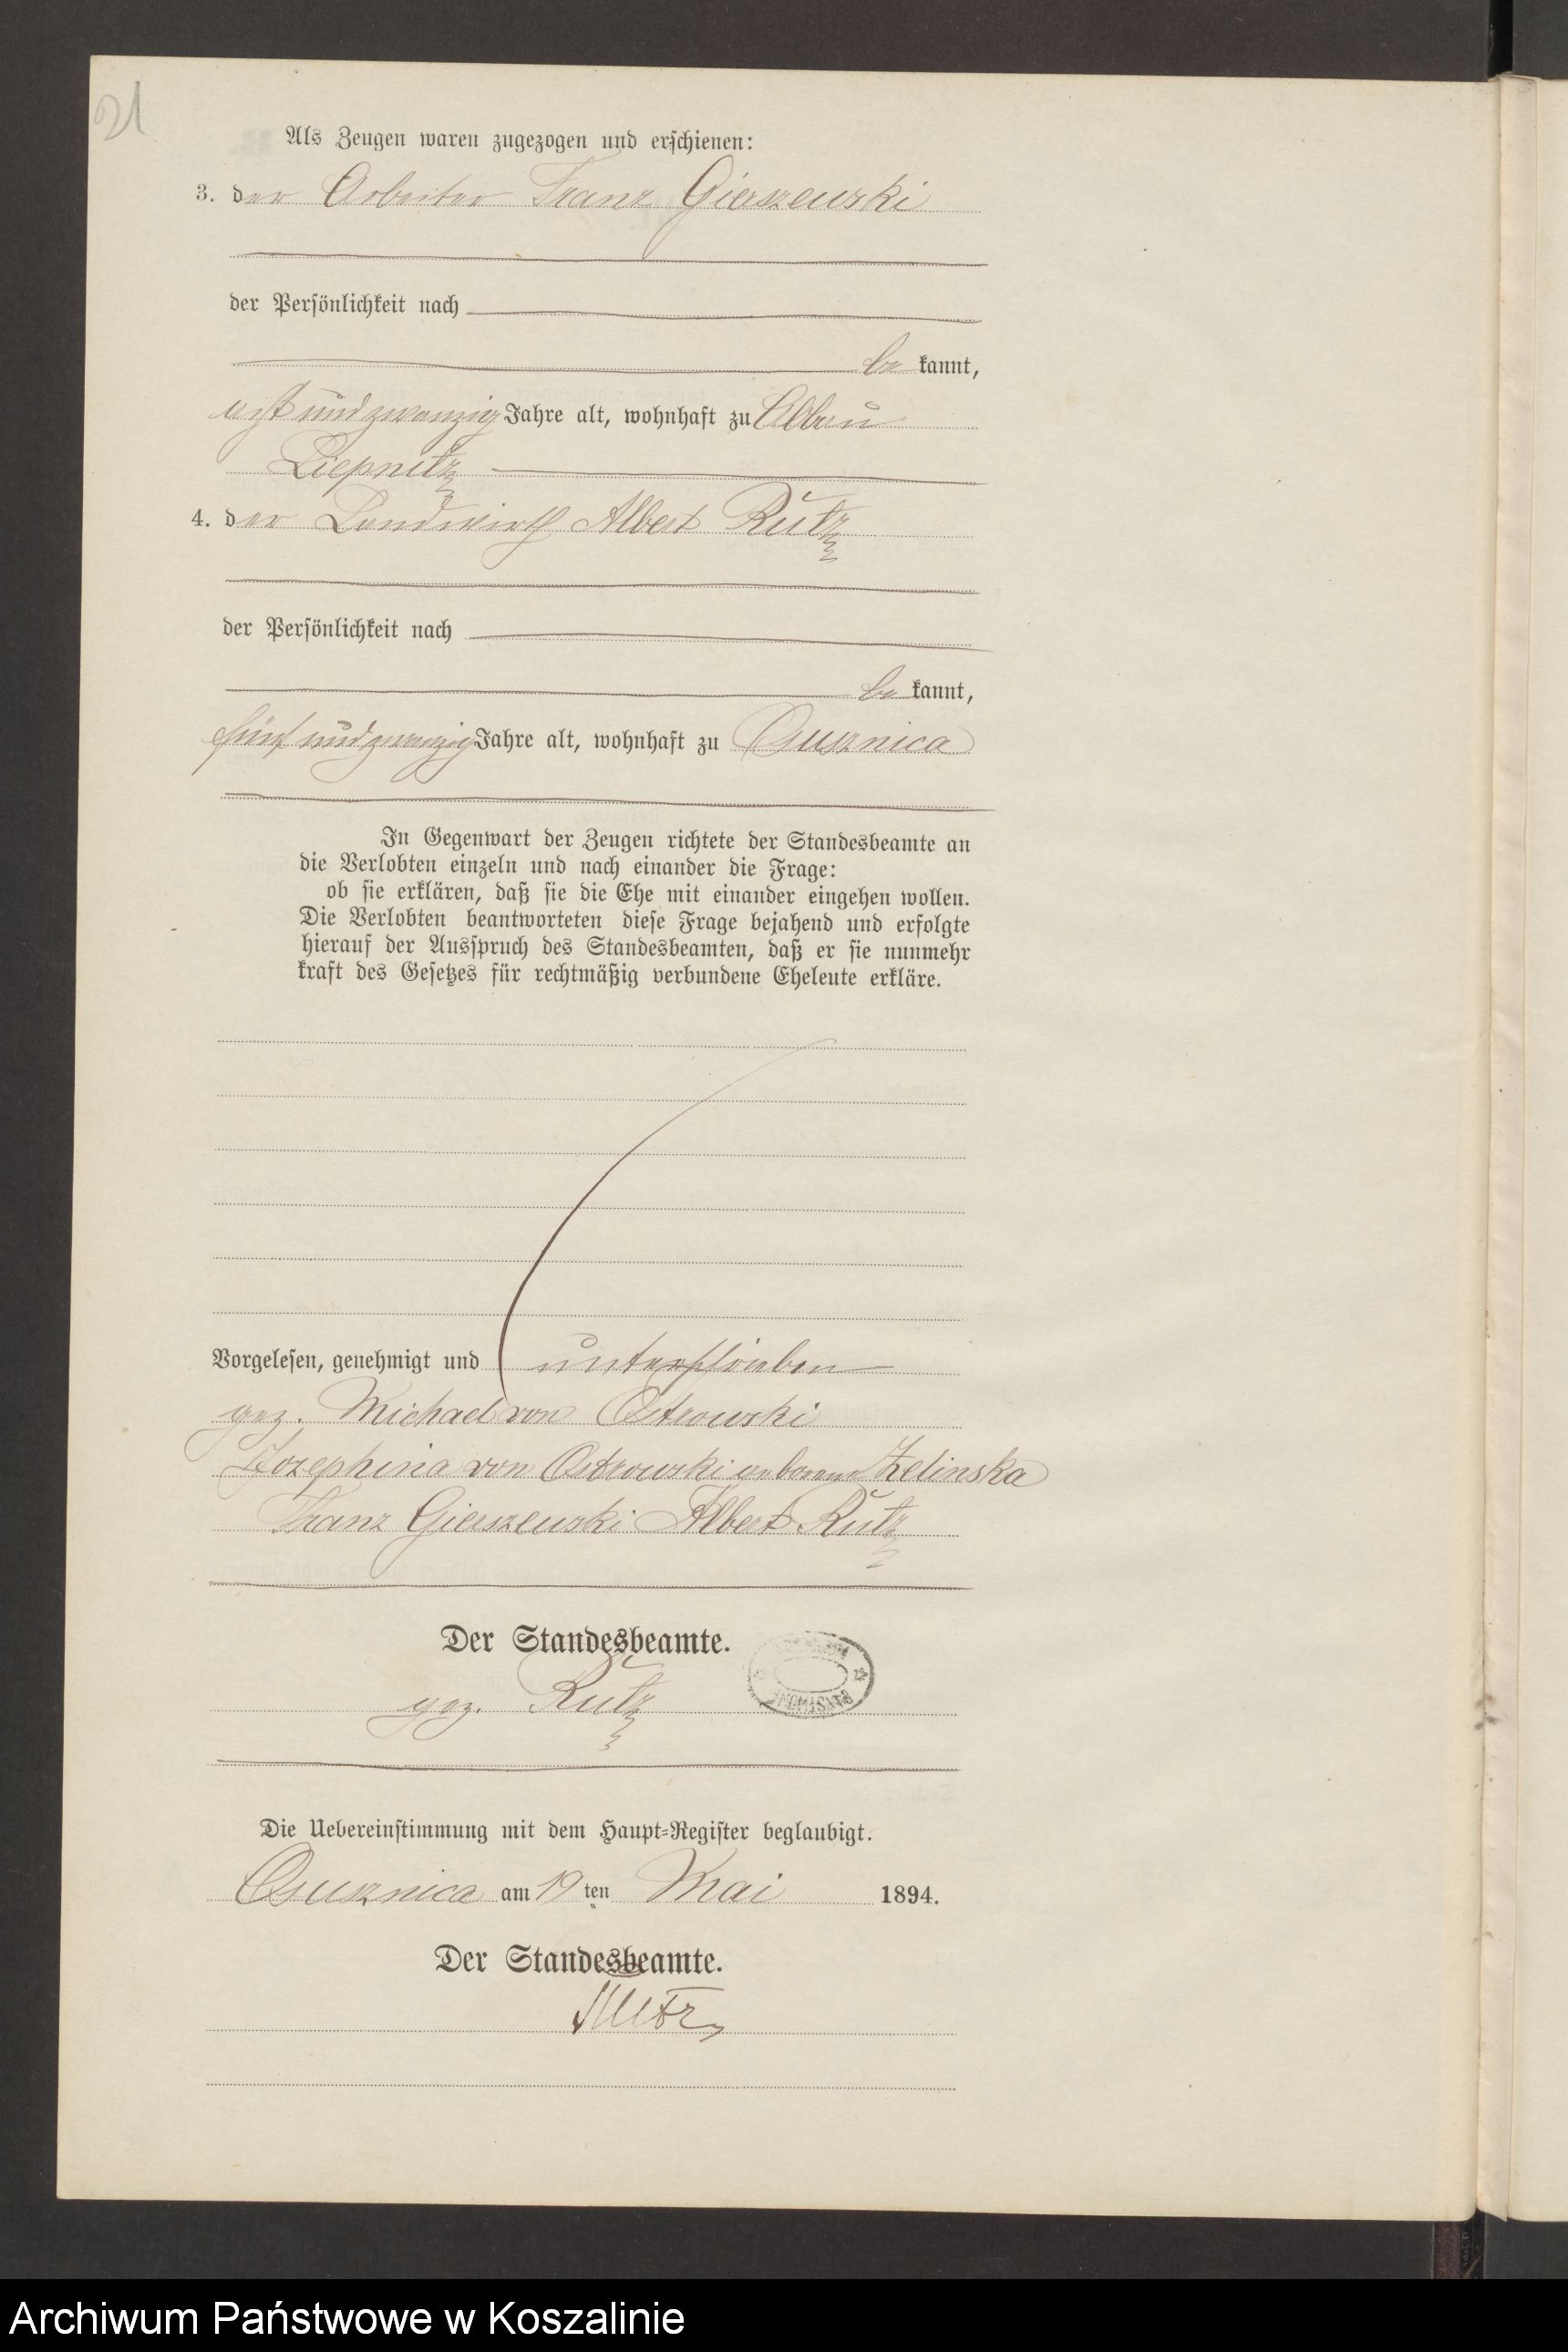 21
Als Zeugen waren zugezogen und erschienen:
3. der Arbeiter Franz Gierszewski
der Persönlichkeit nach
be kannt,
acht und zwanzig Jahre alt, wohnhaft zu Abbau
Liepnitz
4. der Landwirth Albert Rutz
der Persönlichkeit nach
be kannt,
fünf und zwanzig Jahre alt, wohnhaft zu Ossusznica
In Gegenwart der Zeugen richtete der Standesbeamte an
die Verlobten einzeln und nach einander die Frage:
ob sie erklären, daß sie die Ehe mit einander eingehen wollen.
Die Verlobten beantworteten diese Frage bejahend und erfolgte
hierauf der Ausspruch des Standesbeamten, daß er sie nunmehr
kraft des Gesetzes für rechtmäßig verbundene Eheleute erkläre.
Vorgelesen, genehmigt und unterschrieben
gez. Michael von Ostrowski
Jozephina von Ostrowski geborene Zelinska
Franz Gierszewski Albert Rutz
Der Standesbeamte.
gez. Rutz
Die Uebereinstimmung mit dem Haupt-Register beglaubigt.
Osusznica am 19 ten Mai 1894.
Der Standesbeamte.
Rutz
Archiwum Państwowe w Koszalinie